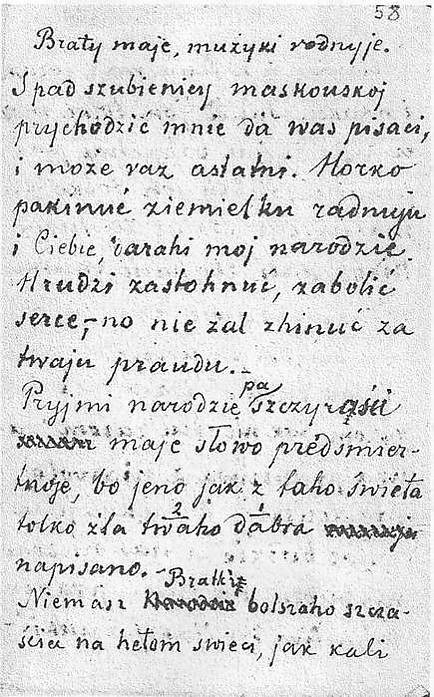 58
Braty maje, mużyki rodnyje.
S pad szubienicy maskouskoj
prychodzić mnie da was pisaci,
i może raz astatni. Horko
pakinuć ziemielku radnuju
i Ciebie, darahi moj narodzie.
Hrudzi zastohnuć, zabolić
serce, – no nie żal zhinuć za
twaju praudu. –
Pryjmi narodzie pa szczyraści
maje słowo predśmier-
tnoje, bo jeno jak z taho świeta
tolko dla twaho 2 dabra 1
napisano. –
Niemasz Bratkiż bolszaho szcza-
ścia na hetom swieci, jak kali